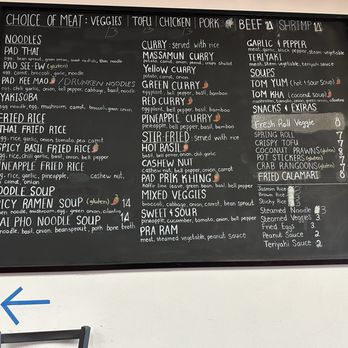 CHOICE OF MEAT: VEGGIES | TOFU | CHICKEN | PORK BEEF 14 SHRIMP 14
13 13
NOODLES
PAD THAI
PAD SEE-EW (gluten)
egg, carrot, broccoli, garlic, noodle
PAD KEE MAO /DRUNKEN NOODLES
YAKISOBA
noodle, egg, mushroom, carrot, broccoli, green onion
FRIED RICE
THAI FRIED RICE
egg, rice, garlic, onion, tomato, pea, carrot
SPICY BASIL FRIED RICE
egg, rice, chili, garlic, basil, onion, bell pepper
PINEAPPLE FRIED RICE
egg, rice, garlic, pineapple, cashew nut,
carrot, onion
NOODLE SOUP
SPICY RAMEN SOUP (gluten) 14
THAI PHO NOODLE SOUP 14
noodle, basil, onion, beansprout, pork bone broth
CURRY - served with rice
MASSAMUN CURRY
potato, carrot, onion, peanut
Yellow CURRY
potato, carrot, onion
GREEN CURRY
eggplant, bell pepper, basil, bamboo
RED CURRY
eggplant, bell pepper, basil, bamboo
PINEAPPLE CURRY
pineapple, bell pepper, basil, bamboo
STIR-FRIED - served with rice
HOT BASIL
basil, bell pepper, onion, chili, garlic
CASHEW NUT
cashew nut, bell pepper, onion, carrot
PAD PRIK KHING
MIXED VEGGIES
broccoli, cabbage, onion, carrot, bean sprout
SWEET & SOUR
pineapple, cucumber, tomato, onion, bell pepper
PRA RAM
meat, steamed vegetable, peanut sauce
GARLIC & PEPPER
meat, garlic, black pepper, steam vegetable
TERIYAKI
meat, steam vegetable, teriyaki sauce
SOUPS
TOM YUM (hot & sour soup)
TOM KHA (coconut soup)
SNACKS & EXTRAS
Fresh Roll Veggie 8
SPRING ROLL 7
CRISPY TOFU 7
COCONUT PRAWNS (gluten) 8
POT STICKERS (gluten) 7
CRAB RANGOONS (gluten) 7
FRIED CALAMARI 8
Jasmine Rice
Brown Rice
Sticky Rice
Steamed Noodle 3
Steamed Veggies 3
Fried Eggs 3
Peanut Sauce 2
Teriyaki Sauce 2